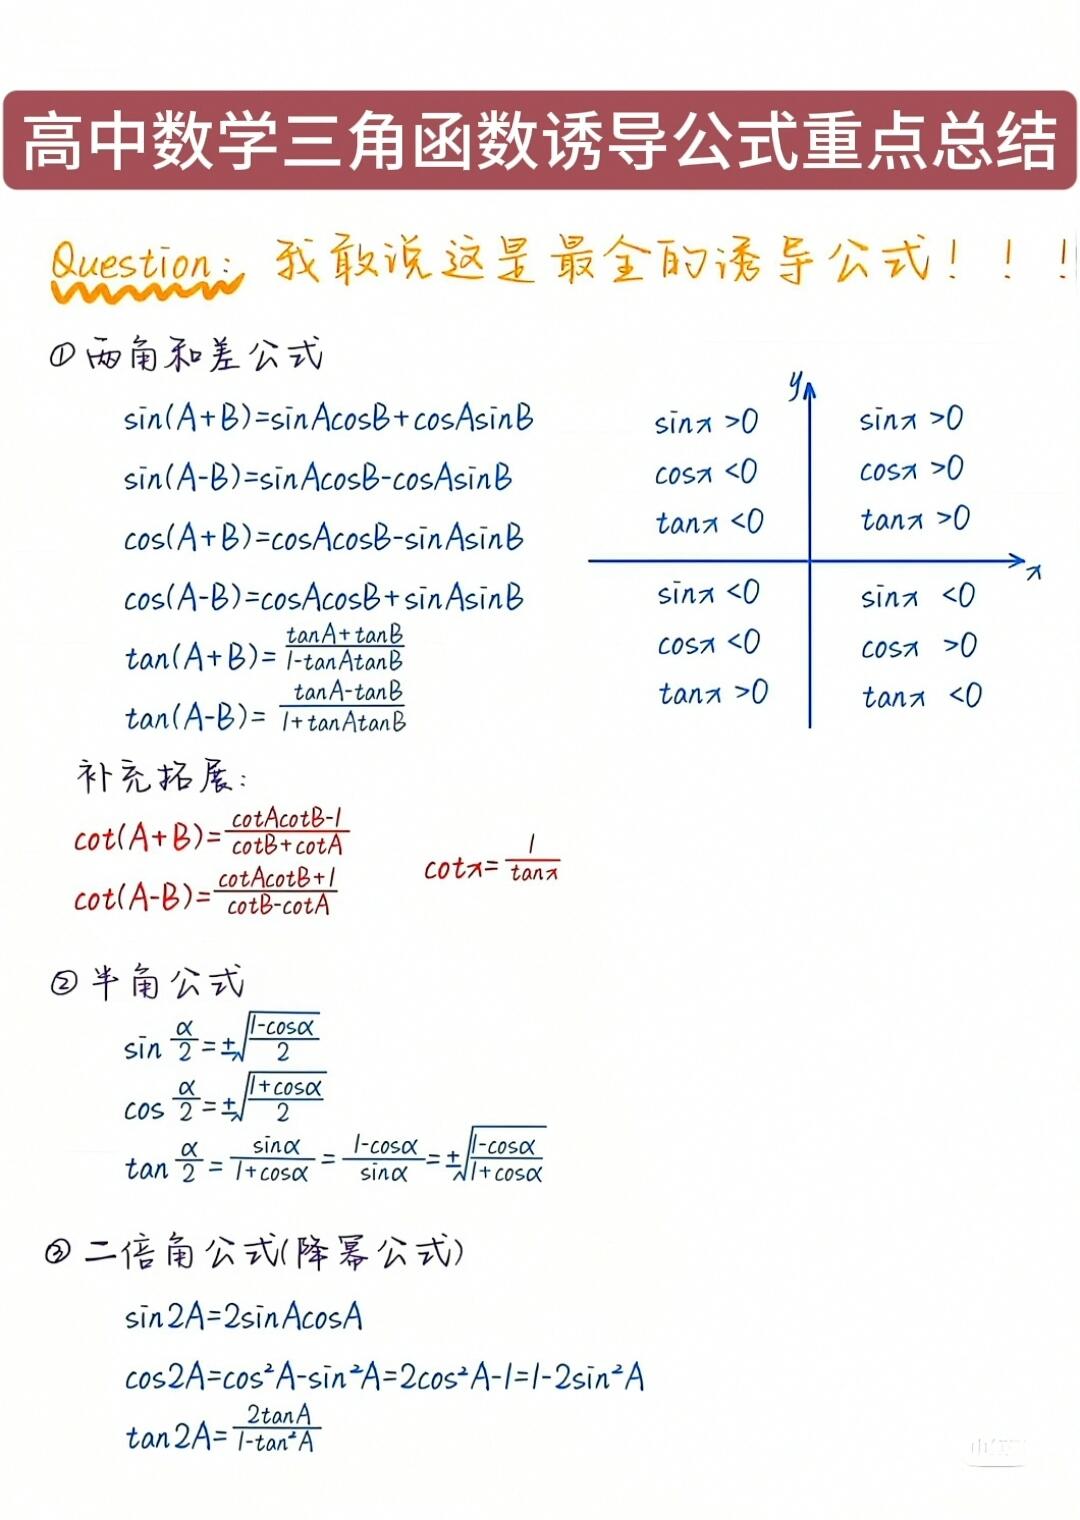 高中数学三角函数诱导公式重点总结
Question: 我敢说这是最全的诱导公式！！！
① 两角和差公式
sin(A+B)=sinAcosB+cosAsinB
sin(A-B)=sinAcosB-cosAsinB
cos(A+B)=cosAcosB-sinAsinB
cos(A-B)=cosAcosB+sinAsinB
tan(A+B)=(tanA+tanB)/(1-tanAtanB)
tan(A-B)=(tanA-tanB)/(1+tanAtanB)
y
sinx >0 sinx >0
cosx <0 cosx >0
tanx <0 tanx >0
x
sinx <0 sinx <0
cosx <0 cosx >0
tanx >0 tanx <0
补充拓展:
cot(A+B)=(cotAcotB-1)/(cotB+cotA)
cot(A-B)=(cotAcotB+1)/(cotB-cotA)
cotx=1/tanx
② 半角公式
sin α/2=±√((1-cosα)/2)
cos α/2=±√((1+cosα)/2)
tan α/2=sinα/(1+cosα)=(1-cosα)/sinα=±√((1-cosα)/(1+cosα))
③ 二倍角公式(降幂公式)
sin2A=2sinAcosA
cos2A=cos²A-sin²A=2cos²A-1=1-2sin²A
tan2A=2tanA/(1-tan²A)